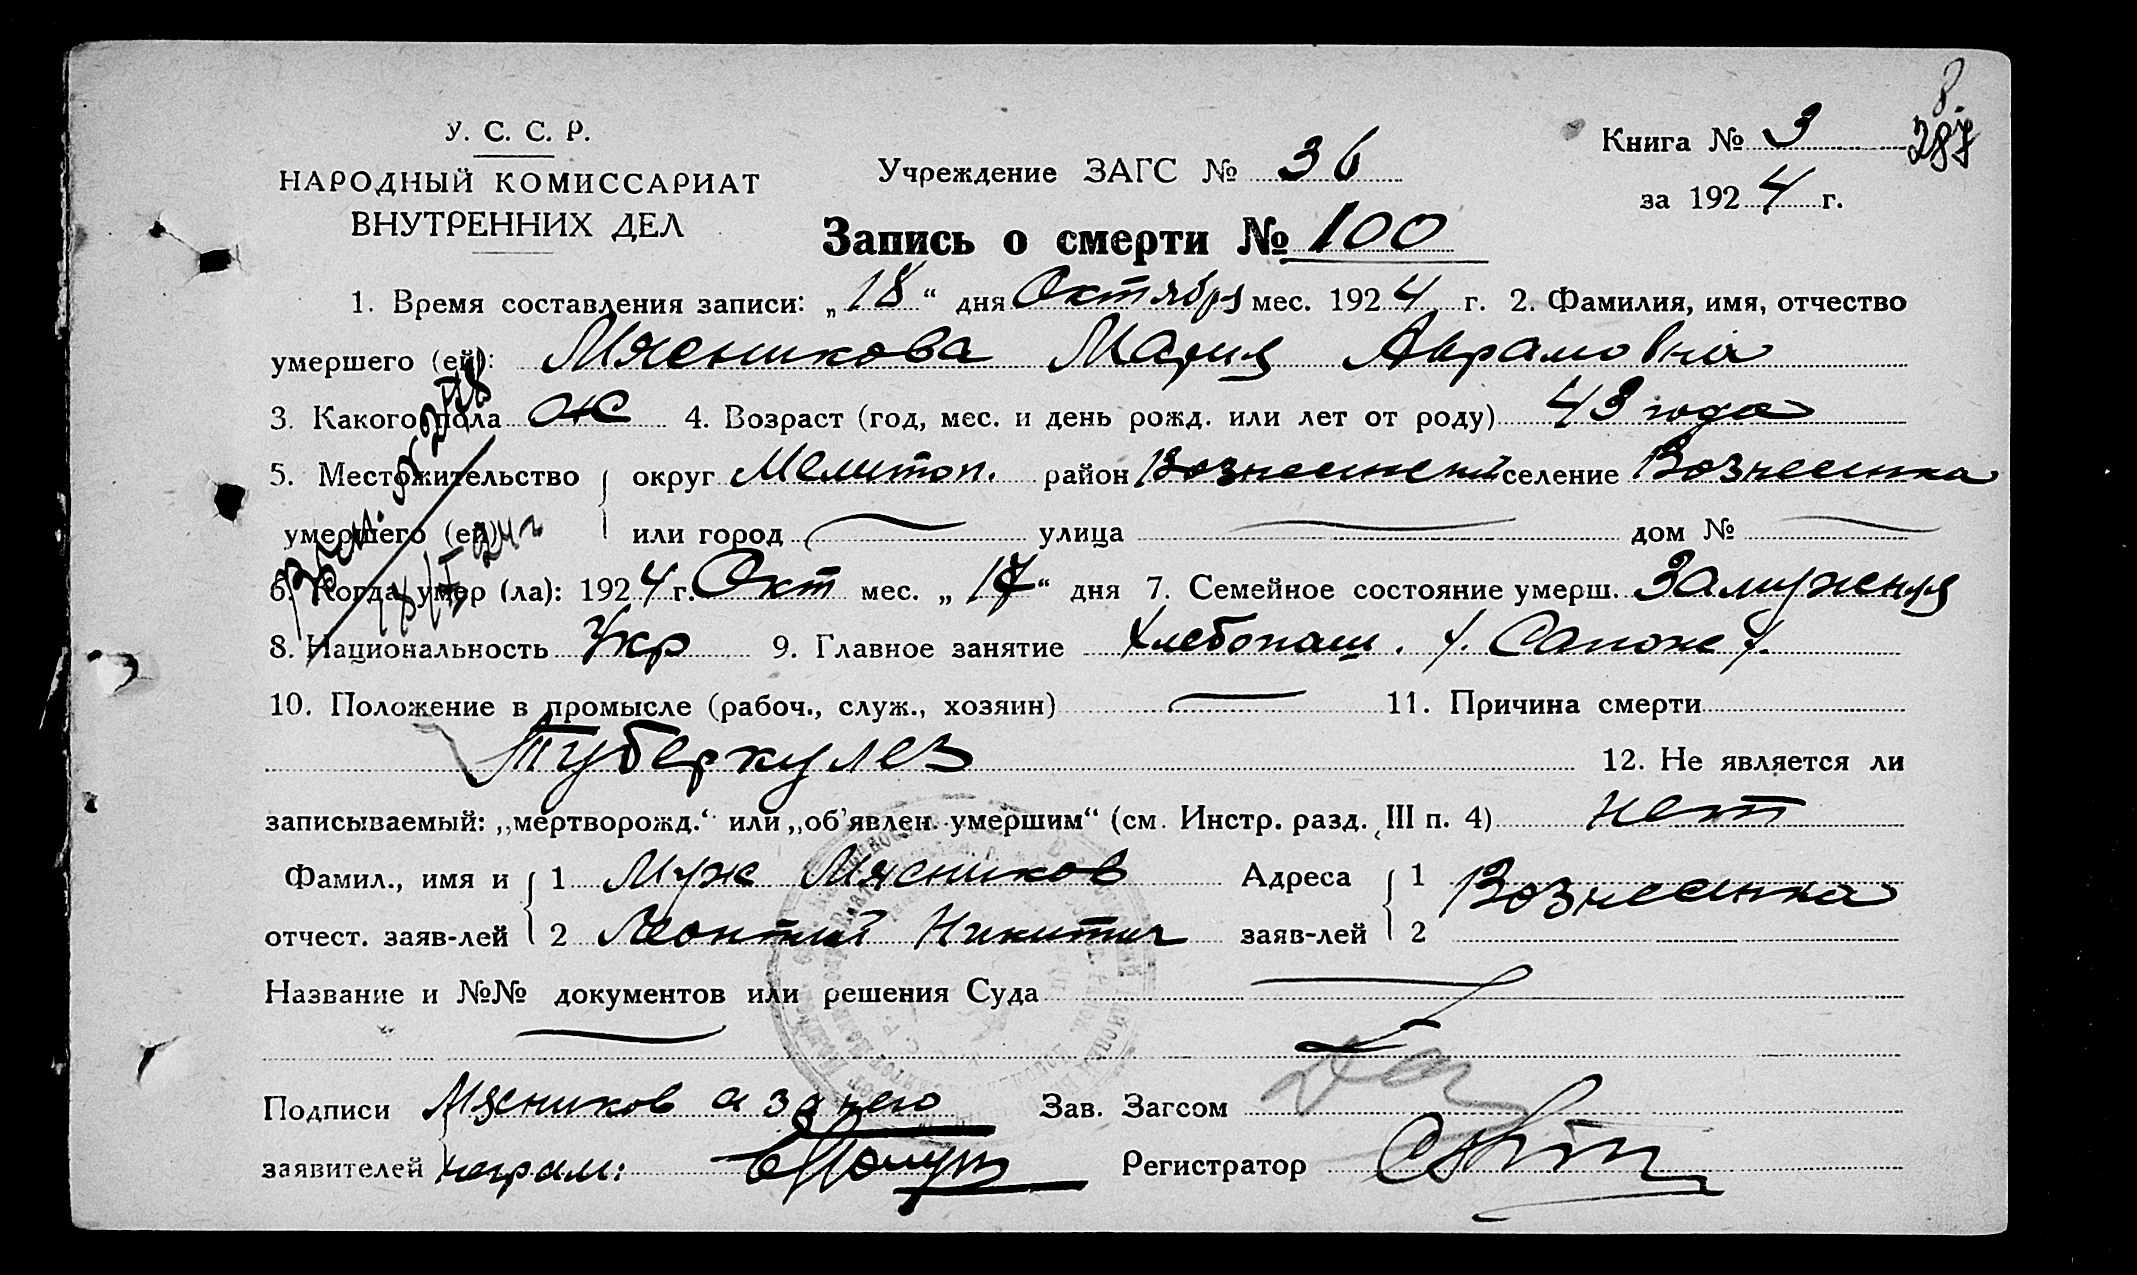 8.
287
У. С. С. Р.
НАРОДНЫЙ КОМИССАРИАТ
ВНУТРЕННИХ ДЕЛ
Учреждение ЗАГС № 36
Книга № 3
за 1924 г.
Запись о смерти № 100
1. Время составления записи: „18“ дня Октября мес. 1924 г. 2. Фамилия, имя, отчество
умершего (ей): Мясникова Мария Аврамовна
3. Какого пола Ж 4. Возраст (год, мес. и день рожд. или лет от роду) 43 года
5. Местожительство округ Мелитоп. район Вознесенский селение Вознесенка
умершего (ей) или город улица дом №
6. Когда умер (ла): 1924 г. Окт мес. „17“ дня 7. Семейное состояние умерш. Замужняя
8. Национальность Укр 9. Главное занятие Хлебопаш.
10. Положение в промысле (рабоч., служ., хозяин) 11. Причина смерти
Туберкулез 12. Не является ли
записываемый: „мертворожд.“ или „об'явлен. умершим“ (см. Инстр. разд. III п. 4) нет
Фамил., имя и 1 Муж Мясников Адреса 1 Вознесенка
отчест. заяв-лей 2 Леонтий Никитич заяв-лей 2
Название и №№ документов или решения Суда
Подписи Мясников а за него Зав. Загсом
заявителей неграм: Регистратор